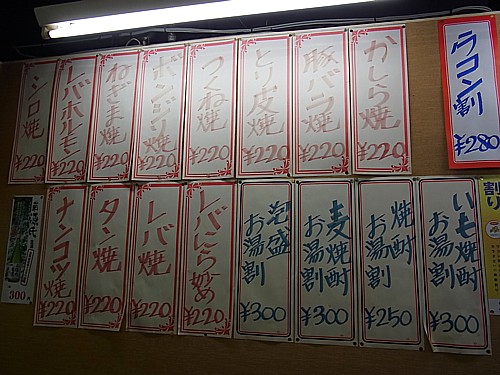 ウコン割
¥280
かしら焼
¥220
豚バラ焼
¥220
とり皮焼
¥220
つくね焼
¥220
ボンジリ焼
¥220
ねぎま焼
¥220
レバホルモン
¥220
シロ焼
¥220
割り
いも焼酎お湯割
¥300
焼酎お湯割
¥250
麦焼酎お湯割
¥300
泡盛お湯割
¥300
レバにら炒め
¥220
レバ焼
¥220
タン焼
¥220
ナンコツ焼
¥220
300